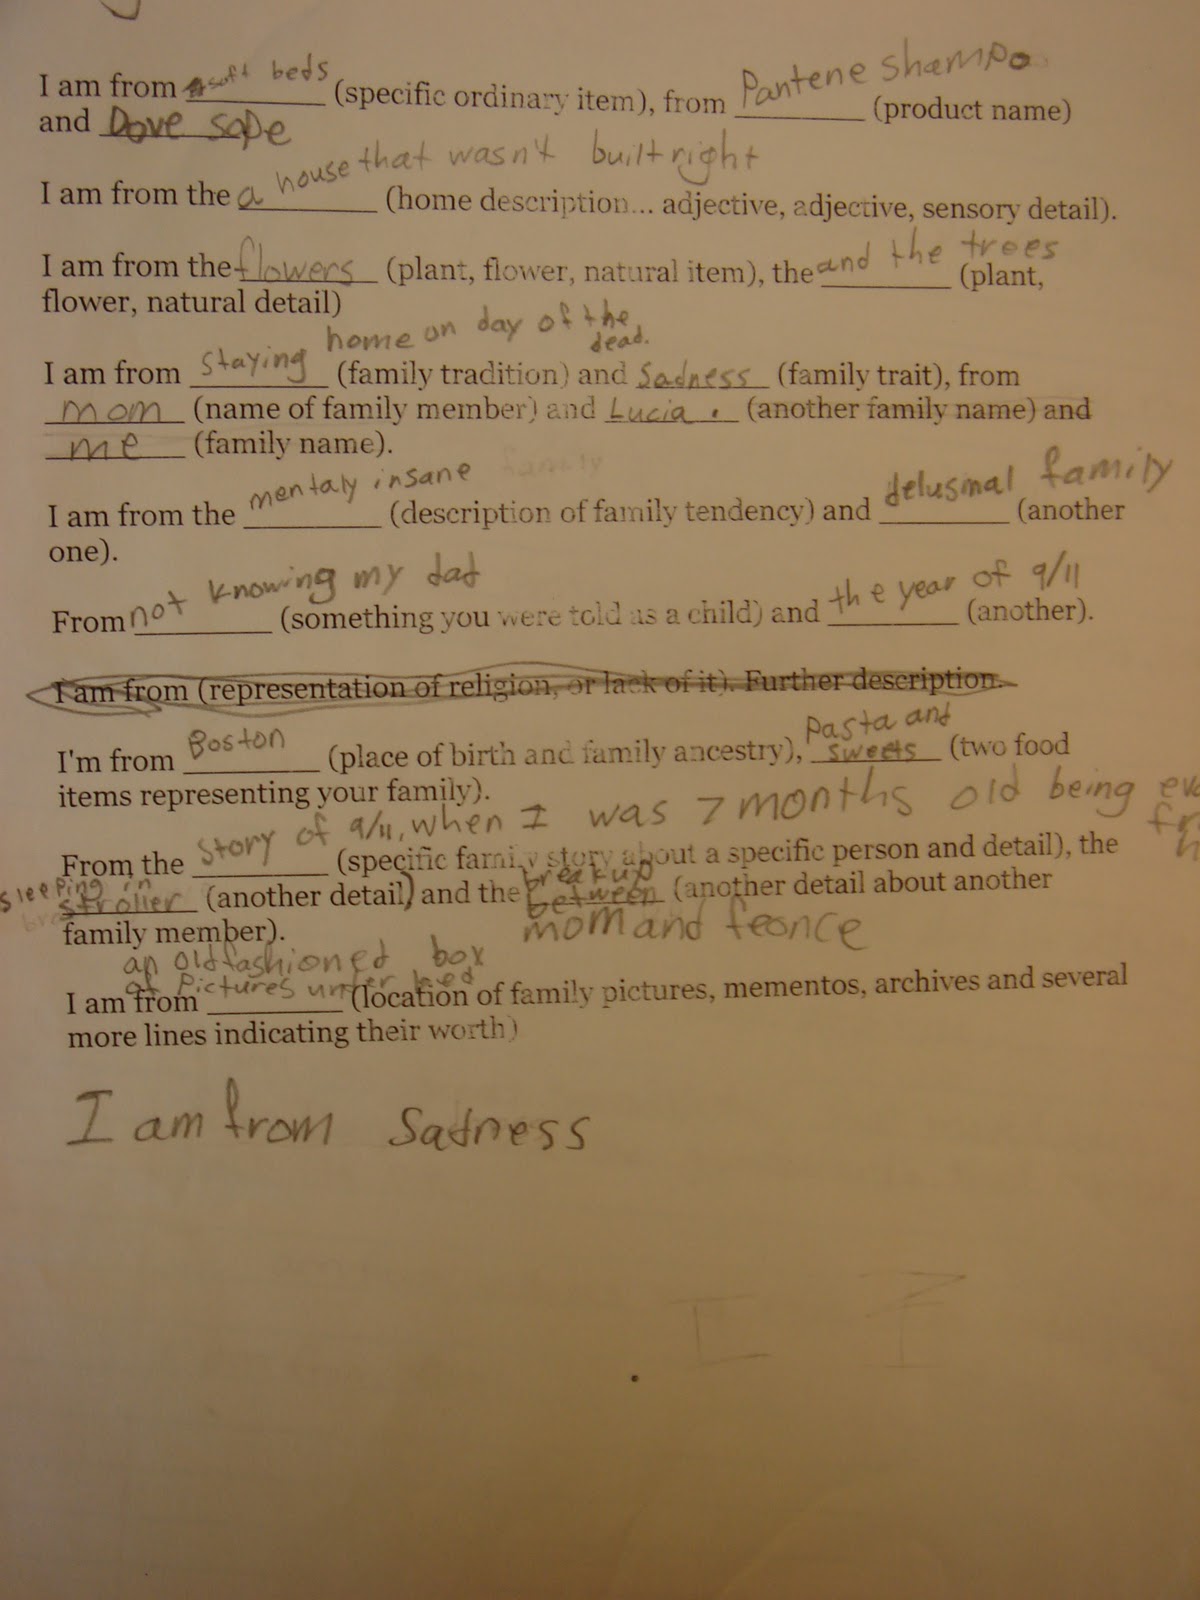 soft beds Pantene shampo
I am from ________ (specific ordinary item), from ________ (product name)
and Dove sope
house that wasn't built right
I am from the a ________ (home description... adjective, adjective, sensory detail).
and the trees
I am from the flowers (plant, flower, natural item), the ________ (plant,
flower, natural detail)
home on day of the
dead.
I am from staying (family tradition) and Sadness (family trait), from
mom (name of family member) and Lucia. (another family name) and
me (family name).
mentaly insane family delusmal family
I am from the ________ (description of family tendency) and ________ (another
one).
not knowing my dad the year of 9/11
From ________ (something you were told as a child) and ________ (another).
I am from (representation of religion, or lack of it). Further description.
Boston Pasta and
I'm from ________ (place of birth and family ancestry), sweets (two food
items representing your family).
story of 9/11, when I was 7 months old being
From the ________ (specific family story about a specific person and detail), the
sleeping in breakup
stroller (another detail) and the between (another detail about another
family member). mom and feonce
an old fashioned box
of Pictures under bed
I am from ________ (location of family pictures, mementos, archives and several
more lines indicating their worth)
I am from Sadness